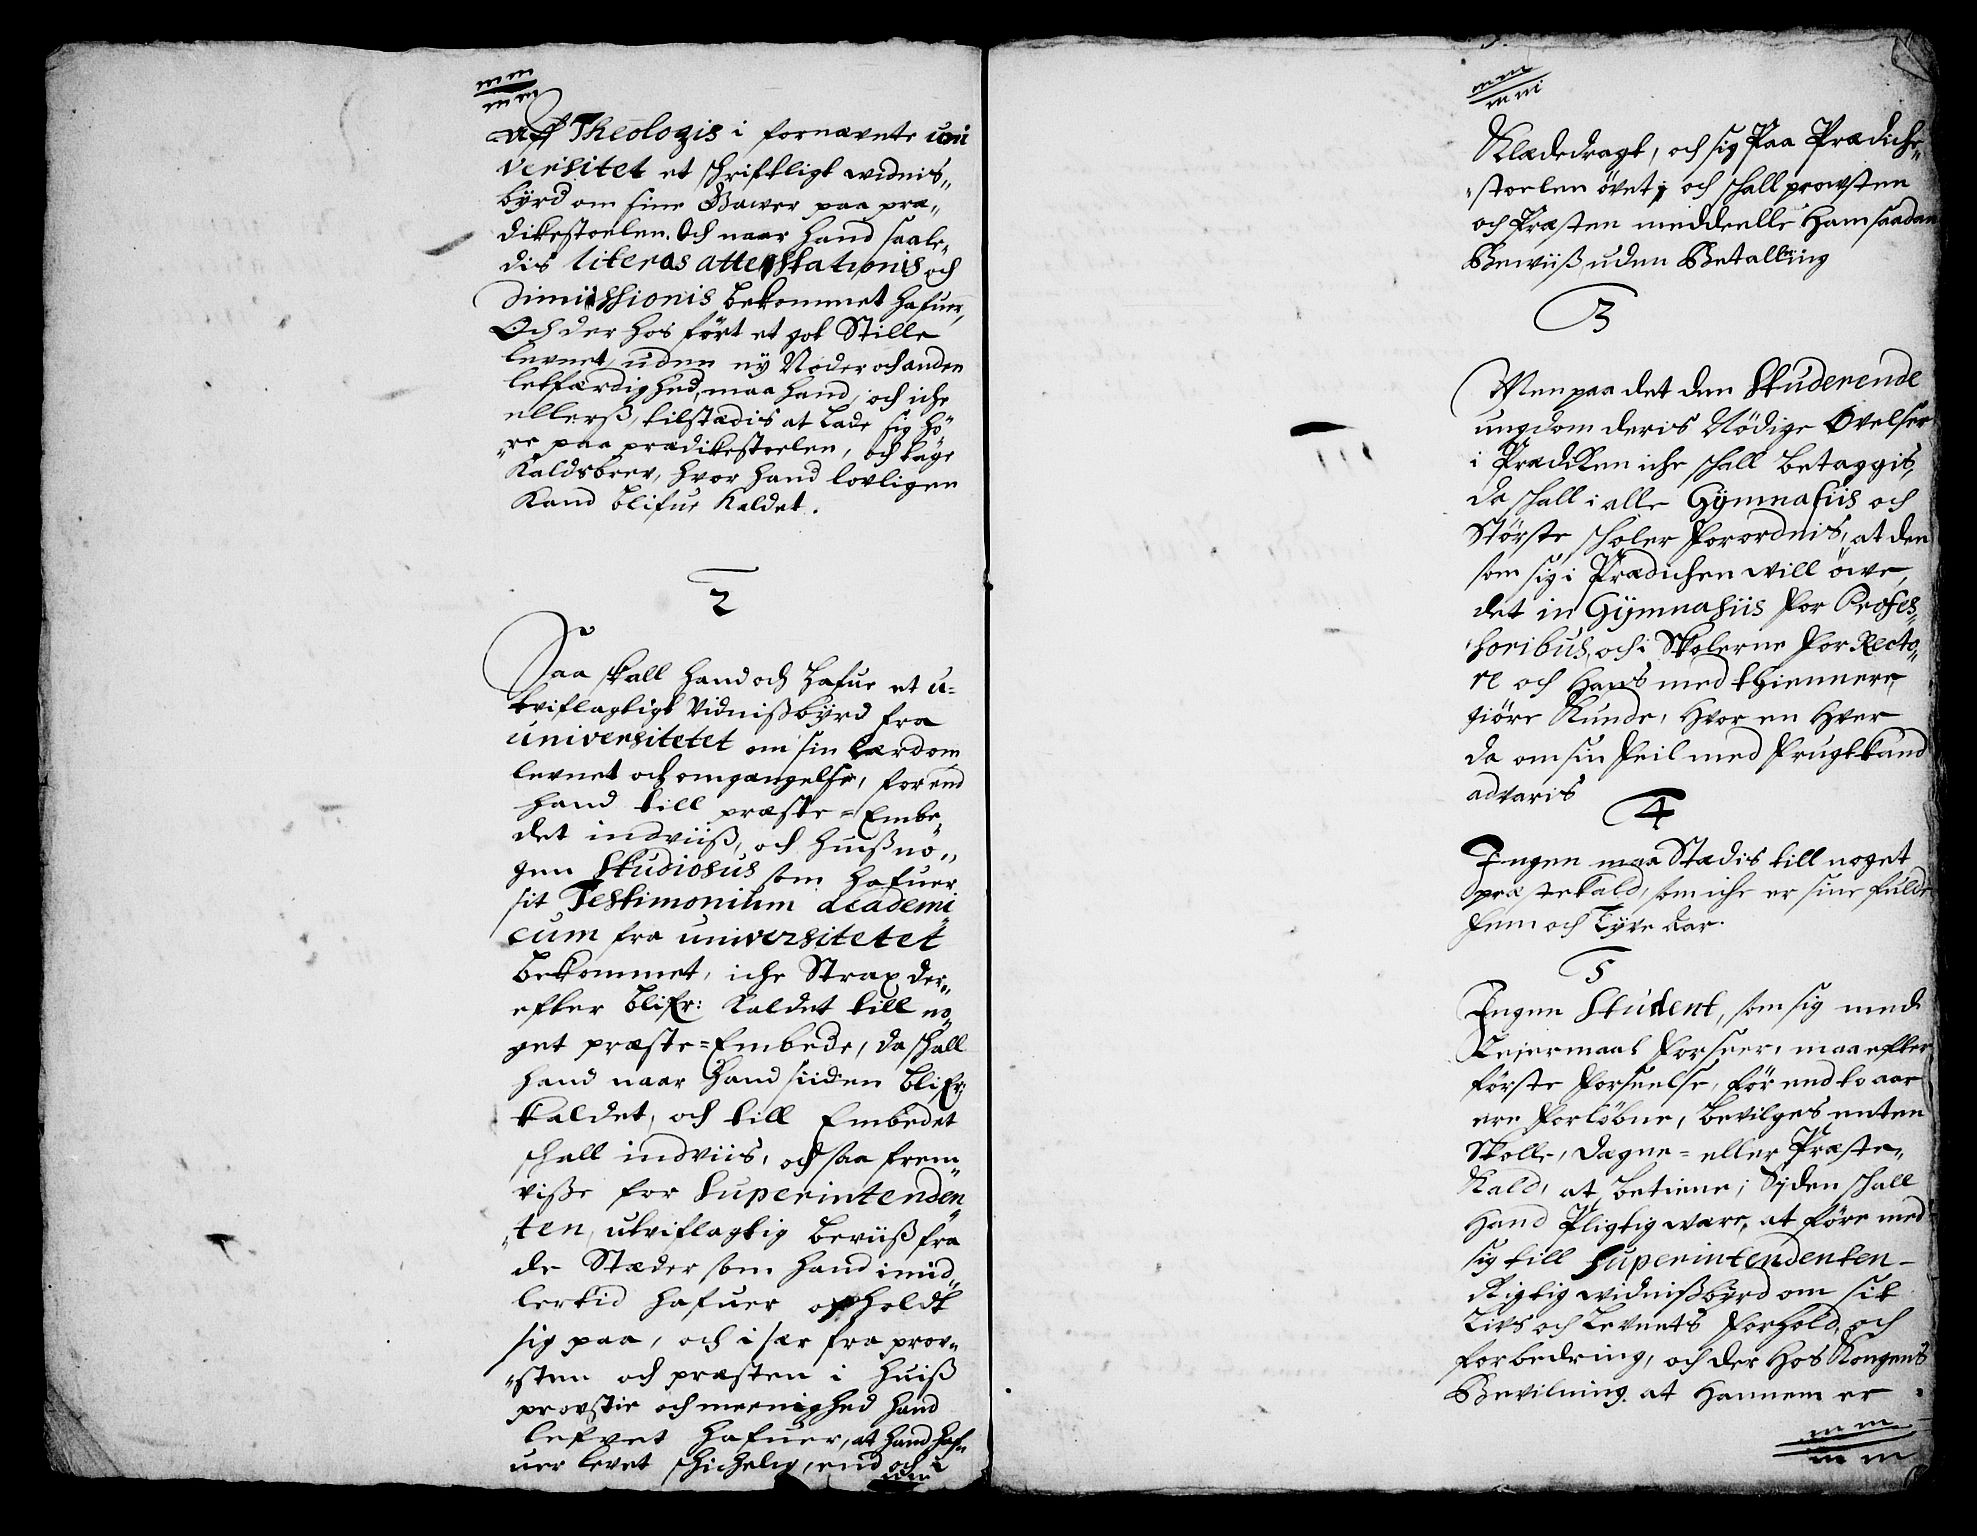 Aff Theologis i fornævnte uni
versitet et schriftligt widnis„
byrd om sine Gawer paa præ„
dikestoelen. Och naar hand saale„
dis literas attestationis och
Dimissionis bekommet hafuer,
Och der hos ført et got Stille
levnet, uden ny Noder och anden
letfærdighed, maa hand, och iche
ellerß, tilstædis at Lade sig hö„
„re paa prædikestoelen, och tage
Kaldsbrev, hvor hand lovligen
Kand blifue Kaldet.
2
Saa skall hand och hafue et u=
tviflagtigt Vidnißbyrd fra
universitetet om sin Lærdom
levnet och omgængelse, førend
hand till præste=Embe„
det indviiß, och huiß no„
gen Studiosus som hafuer
sit Testimonium academi„
cum fra universitetet
bekommet, iche Strax der„
efter blifr: Kaldet till no„
get præste=Embede, da schall
hand naar hand siiden blifr:
kaldet, och till Embedet
schall indviis, och saa frem„
viße for Superintenden„
„ten, utviflagtig beviiß fra
de Stæder som hand imid„
lertid hafuer opholdt
sig paa, och i sær fra prov„
„sten och præsten i huiß
provstie och meenighed hand
lefvet hafuer, at hand haf„
uer levet schichelig, end och i
Klædedragt, och sig Paa Prædiche„
„stoelen övet; och schall prowsten
och Præsten meddeelle Ham saadan
Bewiiß uden Betalling
3
Men paa det den Studerende
ungdom deris Nödige Övelser
i Prædiken iche schall betaggis,
da schall i alle Gymnasiis och
Störste scholer forordnis, at den
som sig i Prædichen will öwe,
det in Gymnasiis for Profes„
soribus, och i Skolerne for Recto„
re och Hans med thiennere
giöre Kunde, Hvor en Hver
da om sin feil med frugt kand
advaris
4
Ingen maa Stædis till noget
præstekald, som iche er sine fulde
fem och Tyve Aar.
5
Ingen Student, som sig med
Leiermaal forseer, maa efter
förste forseelse, för end to aar
ere forlöbne, bevilges enten
Skolle, Dægne= eller Præste„
Kald, at betiene; Siden schall
Hand Pligtig være, at före med
sig till Superintendenten
Rigtig widnißbyrd om sit
Livs och Levnets forhold, och
forbedring, och der Hos Kongens
Bevilning. at Hannem er